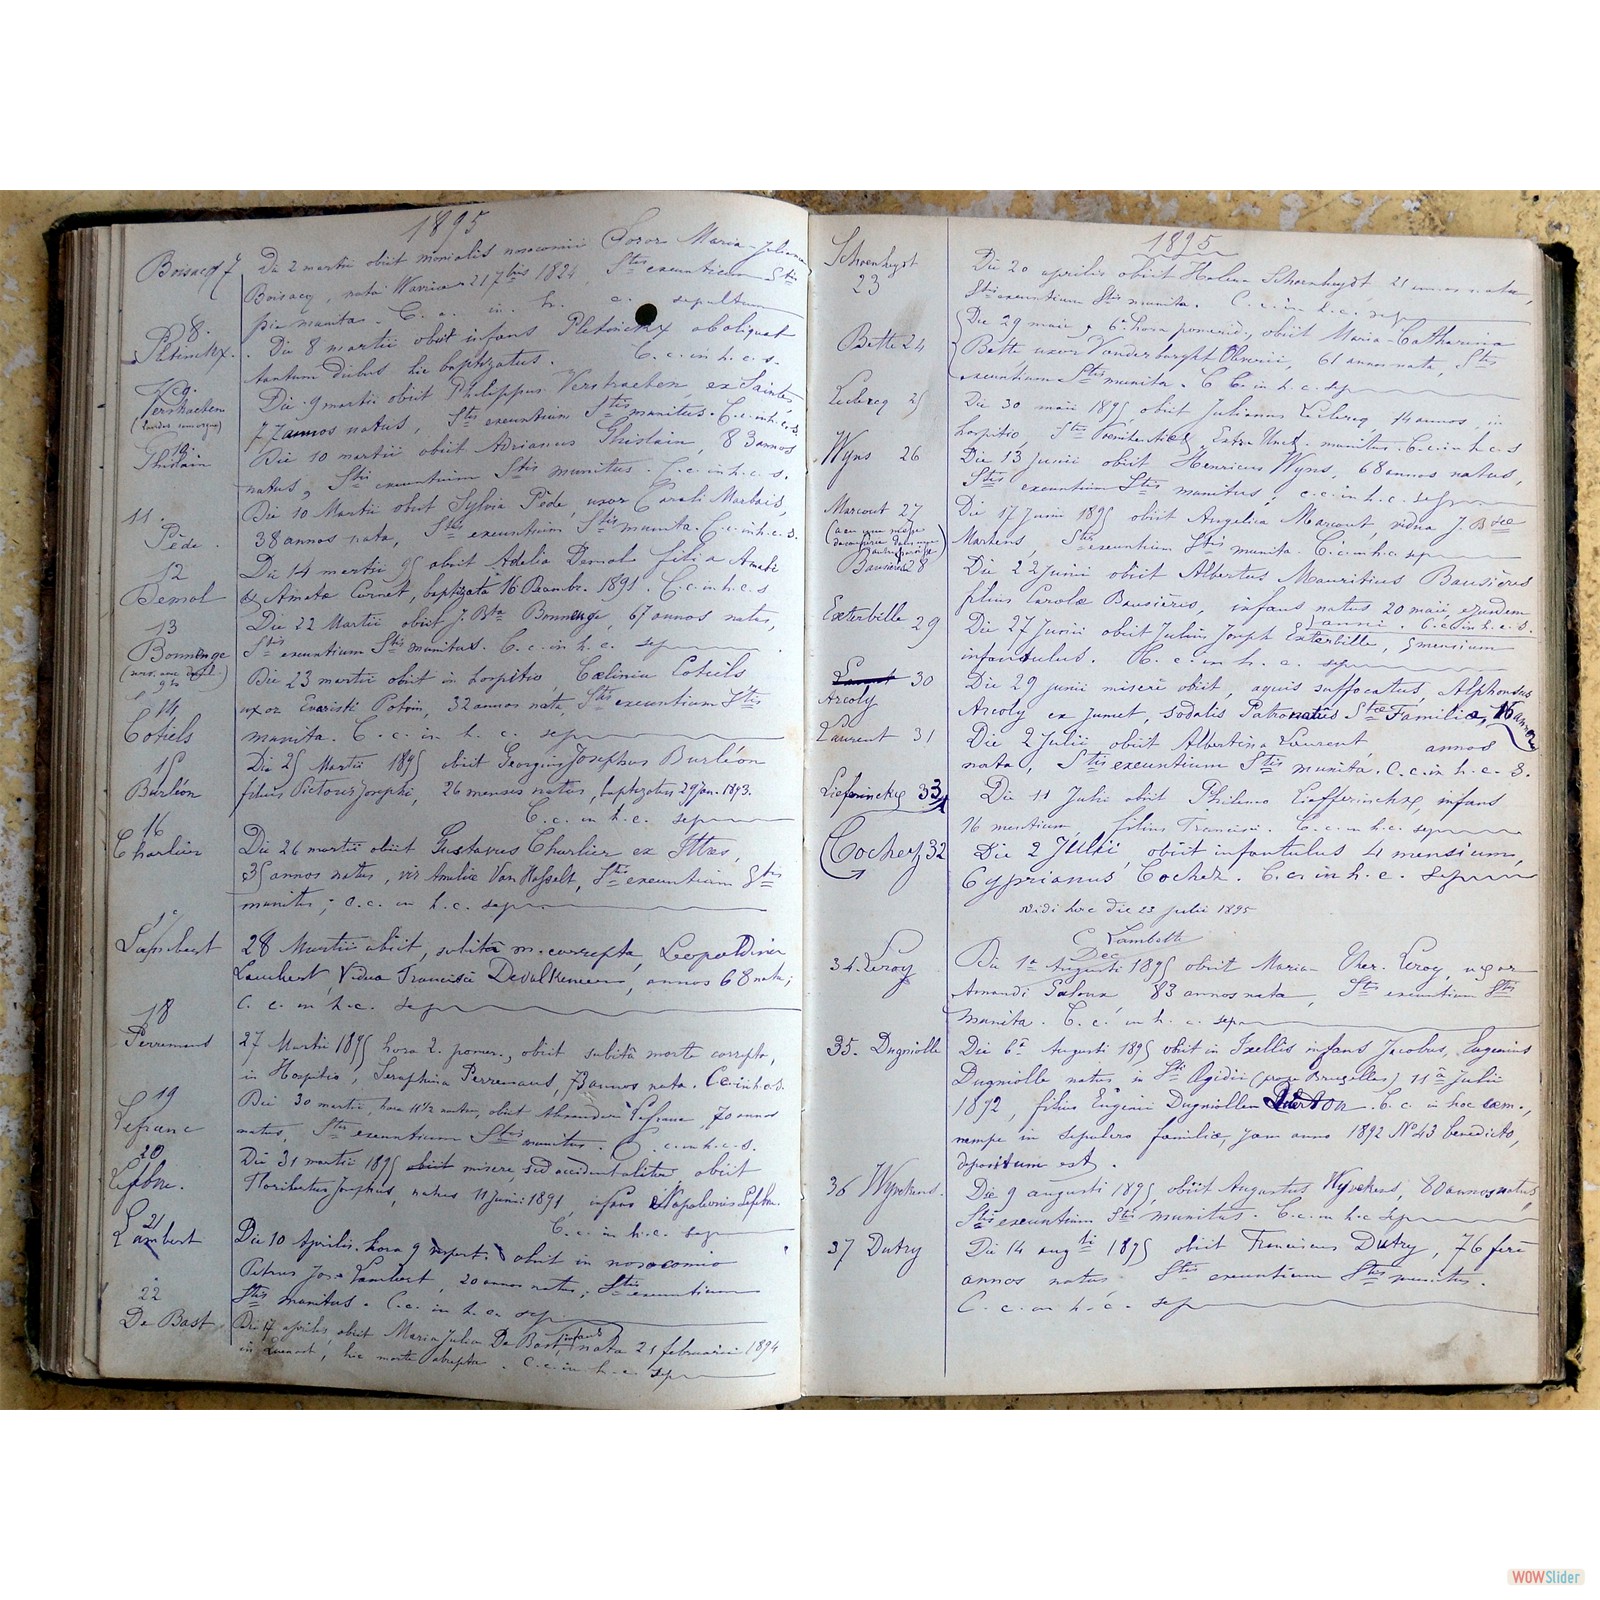 1895
Boisacq 7
Die 2 martii obiit monialis nosocomii Soror Maria-Juliana
Boisacq, nata Wavriae 21 7bris 1824, Stis exeuntium Stis
pie munita. C. c. in h. c. sepultum
8.
Pletinckx.
Die 8 martii obiit infans Pletinckx aboliquot
tantum diebus hic baptizatus. C. c. in h. c. s.
9.
Verstraeten
Die 9 martii obiit Philippus Verstraeten, ex Saintes,
77 annos natus, Stis exeuntium Stis munitus. C. c. in h. c. s.
10.
Ghislain
Die 10 martii obiit Adrianus Ghislain, 83 annos
natus, Stis exeuntium Stis munitus. C. c. in h. c. s.
11.
Pède.
Die 10 Martii obiit Sylvia Pède, uxor Caroli Marbais,
38 annos nata, Stis exeuntium Stis munita. C. c. in h. c. s.
12
Demol
Die 14 martii 95 obiit Adelia Demol filia Amati
& Amatae Cornet, baptizata 16 Decembr. 1891. C. c. in h. c. s
13
Bonnenge
Die 22 Martii obiit J. Bta Bonnenge, 67 annos natus,
Stis exeuntium Stis munitus. C. c. in h. c. sep
14
Cotiels
Die 23 martii obiit in hospitio, Coelinia Cotiels
uxor Evaristi Potvin, 32 annos nata, Stis exeuntium Stis
munita. C. c. in h. c. sep
15
Burléon
Die 25 Martii 1895 obiit Georgius Josephus Burléon
filius Victoris Josephi, 26 menses natus, baptizatus 29 Jan. 1893.
C. c. in h. c. sep
16
Charlier
Die 26 martii obiit Gustavus Charlier ex Ittre,
35 annos natus, vir Amelia Van Hasselt, Stis exeuntium Stis
munitus; c. c. in h. c. sep
Lambert
28 Martii obiit, subitâ m. correpta, Leopoldina
Lambert, Vidua Francisci Devalkeneer, annos 68 nata;
C. c. in h. c. sep
18
Perremans
27 Martii 1895 hora 2. pomer., obiit subitâ morte correpta,
in Hospitio, Seraphina Perremans, 73 annos nata. C. c. in h. c. s.
19
Lefranc
Die 30 martii, hora 11 1/2 noctis, obiit Alexander Lefranc, 70 annos
natus, Stis exeuntium Stis munitus. C. c. in h. c. s.
20
Lefebvre.
Die 31 martii 1895 obiit misere, sed accidentaliter obiit
Floribertus Josephus, natus 11 Junii 1891, infans Napoleonis Lefebvre.
C. c. in h. c. sep
21
Lambert
Die 10 Aprilis. hora 9 vespert. obiit in nosocomio
Petrus Jos. Lambert, 20 annos natus, Stis exeuntium
Stis munitus. C. c. in h. c. sep
22
De Bast
Die 17 aprilis, obiit Maria Julia De Bast, infans nata 21 februarii 1894
in Quenast, hic morte abrepta. C. c. in h. c. sep
1895
Schoonheydt
23
Die 20 aprilis obiit Helena Schoonheydt 21 annos nata,
Stis exeuntium Stis munita. C. c. in h. c. sep
Bette 24
Die 29 maii, 6a hora pomerid., obiit Maria-Catharina
Bette uxor Vanderborght Oliverii, 61 annos nata, Stis
exeuntium Stis munita. C. C. in h. c. sep
Leclercq 25
Die 30 maii 1895 obiit Julianus Leclercq, 14 annos, in
hospitio, Stis Poenitentiae, Extr. Unct. munitus. C. c. in h. c. s
Wyns 26
Die 13 junii obiit Henricus Wyns, 68 annos natus,
Stis exeuntium Stis munitus, c. c. in h. c. sep
Marcout 27
Die 17 Junii 1895 obiit Angelica Marcout, vidua J. Btae
Martens, Stis exeuntium Stis munita. C. c. in h. c. sep
Bausières 28
Die 22 Junii obiit Albertus Mauritius Bausières
filius Carolae Bausières, infans natus 20 maii ejusdem
anni. C. c. in h. c. s.
Exterbille 29
Die 27 Junii obiit Julius Joseph Exterbille, 5 mensium
infantulus. C. c. in h. c. sep
30
Arcoly
Die 29 junii misere obiit, aquis suffocatus, Alphonsus
Arcoly ex Jumet, sodalis Patronatus Stae Familiae, 16 annos
Laurent 31
Die 2 Julii obiit Albertina Laurent, annos
nata, Stis exeuntium Stis munita. C. c. in h. c. s.
Liefferinckx 33
Die 11 Julii obiit Philemo Liefferinckx, infans
16 mentium, filius Francisci. C. c. in h. c. sep
Cochez 32
Die 2 Julii, obiit infantulus 4 mensium,
Cyprianus Cochez. C. c. in h. c. sep
Vidi hoc die 23 julii 1895
C. Lambette
Dec.
34. Leroy
Die 1a Augusti 1895 obiit Maria Ther. Leroy, uxor
Amandi Galoux 83 annos nata, Stis exeuntium Stis
munita. C. c. in h. c. sep
35. Dugniolle
Die 6a Augusti 1895 obiit in Ixellis infans Jacobus, Eugenius
Dugniolle natus in Sti Ogidii (prope Bruxelles) 11a Julii
1892, filius Eugenii Dugniolle C. c. in hoc coem.,
nempe in sepulcro familiae, jam anno 1892 No 43 benedicto,
depositum est.
36 Wyvekens.
Die 9 augusti 1895, obiit Augustus Wyvekens, 80 annos natus,
Stis exeuntium Stis munitus. C. c. in h. c sep
37 Dutry
Die 14 augti 1895 obiit Franciscus Dutry, 76 ferè
annos natus Stis exeuntium Stis munitus.
C. c. in h. c. sep
WOWSlider